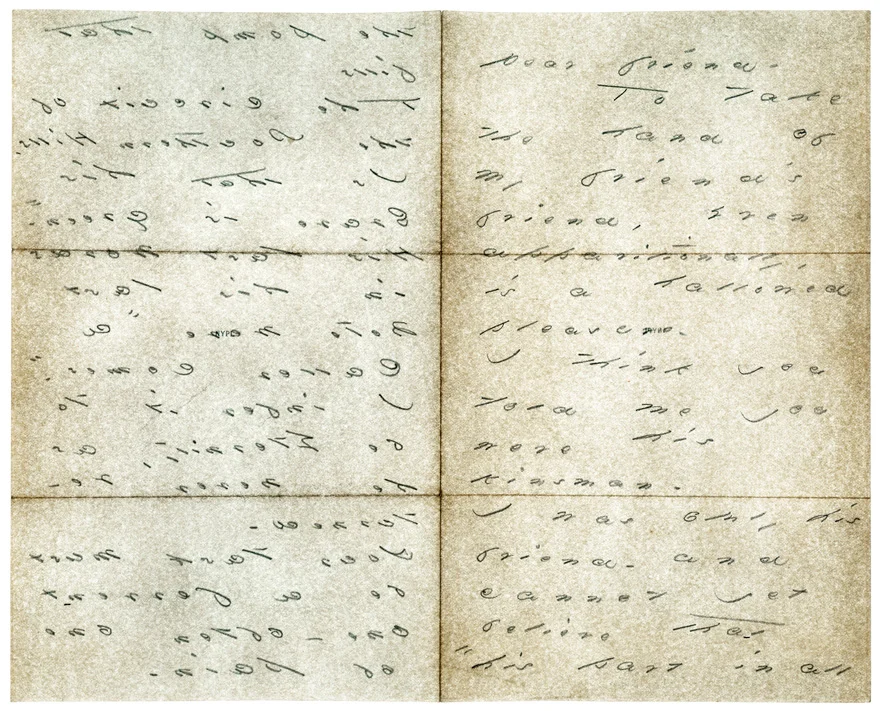 Dear friend -
To take
the hand of
my friend's
friend, even
apparitionally,
is a hallowed
pleasure.
I think you
told me you
were his
kinsman.
I was only his
friend - and
cannot yet
believe that
"his part in all
the pomp that
fills
the circuit of
the Southern hills,
Is that his
Grave is green."
His last words
in his last
note were "a
Caller Comes"
I infer it to
be Eternity, as
he never re-
turned -
Your task must
be a fervent
one - often one
of pain.